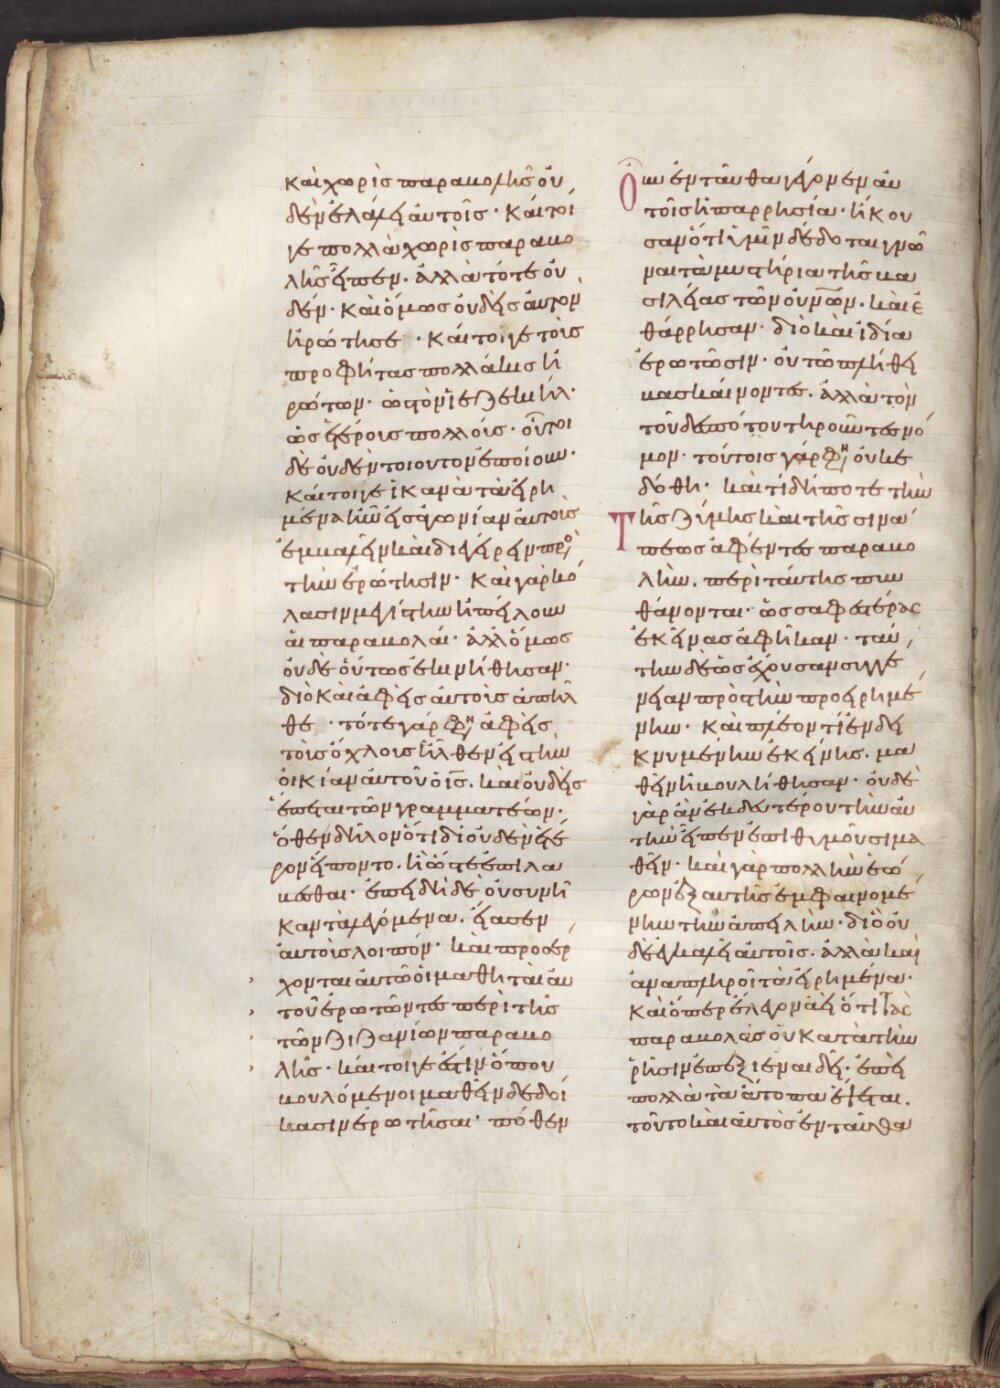 καὶ χωρὶς παραβολῆς οὐ
δὲν ἐλάλει αὐτοῖς· καίτοι
γε πολλὰ χωρὶς παραβο
λῆς εἶπεν. ἀλλὰ τότε οὐ
δέν· καὶ ὅμως οὐδεὶς αὐτὸν
ἠρώτησε· καίτοιγε τοὺς
προφήτας πολλάκις ἠ
ρώτων· ὥσπερ τὸν ἰεζεκιήλ·
ὡς ἑτέροις πολλοῖς· οὗτοι
δὲ οὐδὲν τοιοῦτον ἐποίουν·
καίτοιγε ἱκανὰ τὰ εἰρη
μένα ἦν εἰς ἀγωνίαν αὐτοὺς
ἐμβαλεῖν καὶ διεγεῖρειν πρὸς
τὴν ἐρώτησιν· καὶ γὰρ κό
λασιν μεγίστην ἠπείλουν
αἱ παραβολαί· ἀλλ' ὅμως
οὐδὲ οὕτως ἐκινήθησαν·
διὸ καὶ ἀφεὶς αὐτοὺς ἀπῆλ
θε· τότε γάρ φησιν ἀφεὶς
τοὺς ὄχλους ἦλθεν εἰς τὴν
οἰκίαν αὐτοῦ ὁ ις. καὶ οὐδεὶς
ἕπεται τῶν γραμματέων·
ὅθεν δῆλον ὅτι δι' οὐδὲν ἕτε
ρον εἵποντο. ἢ ὥστε ἐπιλα
βέσθαι· ἐπειδὴ δὲ οὐ συνῆ
καν τὰ λεγόμενα. εἴασεν
αὐτοὺς λοιπόν· καὶ προσέρ
χονται αὐτῶ οἱ μαθηταὶ αὐ
τοῦ ἐρωτῶντες περὶ τῆς
τῶν ζιζανίων παραβο
λῆς· καίτοιγε ἔστιν ὅπου
βουλόμενοι μαθεῖν δεδοί
κασιν ἐρωτῆσαι· πόθεν
οὖν ἐνταῦθα γέγονεν αὐ
τοῖς ἡ παρρησία· ἤκου
σαν ὅτι ὑμῖν δέδοται γνῶ
ναι τὰ μυστήρια τῆς βα
σιλείας τῶν οὐνῶν. καὶ ἐ
θάρρησαν· διὸ καὶ ἰδία
ἐρωτῶσιν· οὐ τῶ πλήθει
βασκαίνοντες. ἀλλὰ τὸν
τοῦ δεσπότου τηροῦντες νό
μον· τούτοις γάρ φησιν οὐ δέ
δοται· καὶ τί δήποτε τὴν
τῆς ζύμης καὶ τῆς σινά
πεως ἀφέντες παραβο
λὴν. περὶ ταύτης πυν
θάνονται· ὡς σαφεστέρας
ἐκείνας ἀφῆκαν· ταύ
την δὲ ὡς ἔχουσαν συγγέ
νειαν πρὸς τὴν προειρημέ
νην· καὶ πλέον τι ἐνδει
κνυμένην ἐκείνης. μα
θεῖν ἐβουλήθησαν· οὐδὲ
γὰρ ἂν ἐκ δευτέρου τὴν αὐ
τὴν εἶπεν ἐπιθυμοῦσι μα
θεῖν· καὶ γὰρ πολλὴν ἑώ
ρων ἐξ αὐτῆς ἐμφαινομέ
νην τὴν ἀπειλήν· διὸ οὐ
δὲ ἐγκαλεῖ αὐτοῖς. ἀλλὰ καὶ
ἀναπληροῖ τὰ εἰρημένα·
καὶ ὅπερ ἔλεγον ἀεὶ ὅτι τὰς
παραβολὰς οὐ κατὰ τὴν
ῥῆσιν ἐπεξιέναι δεῖ· ἐπεὶ
πολλὰ τὰ ἄτοπα ἕψεται.
τοῦτο καὶ αὐτὸς ἐνταῦθα